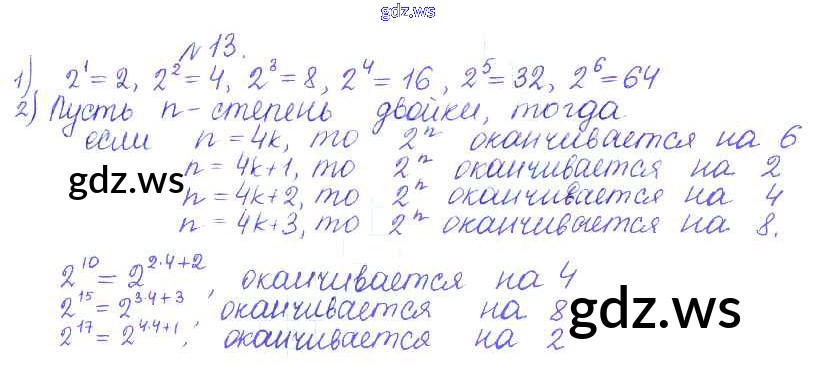 gdz.ws
№13.
1) 2^1 = 2, 2^2 = 4, 2^3 = 8, 2^4 = 16, 2^5 = 32, 2^6 = 64
2) Пусть n - степень двойки, тогда
если n = 4k, то 2^n оканчивается на 6
n = 4k+1, то 2^n оканчивается на 2
gdz.ws
n = 4k+2, то 2^n оканчивается на 4
n = 4k+3, то 2^n оканчивается на 8.
2^10 = 2^(2·4+2), оканчивается на 4
2^15 = 2^(3·4+3), оканчивается на 8
gdz.ws
2^17 = 2^(4·4+1), оканчивается на 2